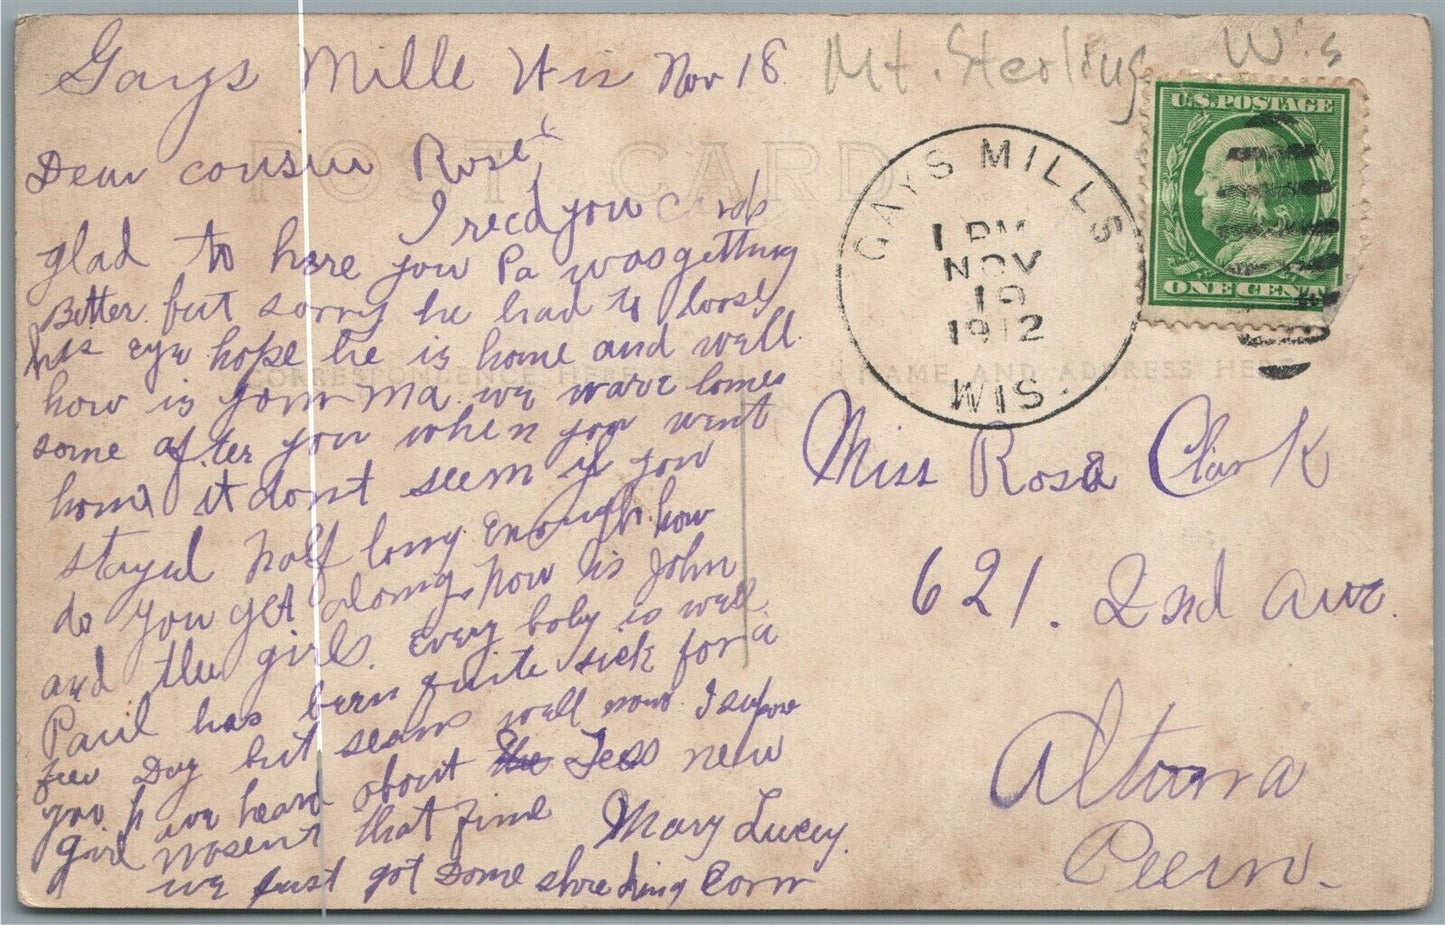 Gays Mills Wis Nov 18
Mt. Sterling Wis
POST CARD
Dear cousin Rose
I recd you cards
glad to here you Pa was getting
Better but sorry he had to loose
his eye hope he is home and well.
how is your Ma we ware lomes
some after you when you went
home it dont seem if you
stayed half long enough. how
do you get along, how is John
and the girls. Every boby is well
Paul has been quite sick for a
few Day but seams well now I supose
you h ave heard about the Tess new
girl wosent that fine Mary Lucey.
we just got some shredding corn
CORRESPONDENCE HERE
NAME AND ADDRESS HERE
GAYS MILLS
1 PM
NOV
19
1912
WIS.
U.S. POSTAGE
ONE CENT
Miss Rosa Clark
621. 2nd ave.
Altoona
Peenn.